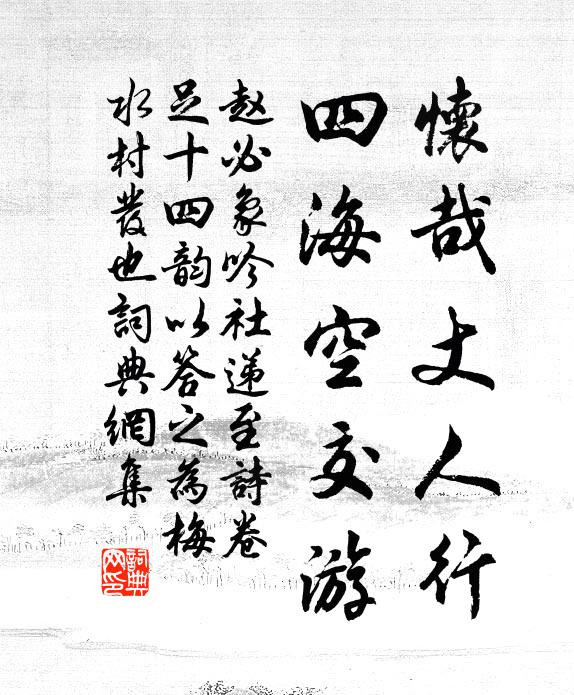 懷哉丈人行
四海空交游
赵必象吟社递至詩卷
足十四韵以答之為梅
水村發也詞典網集
詞典
网印